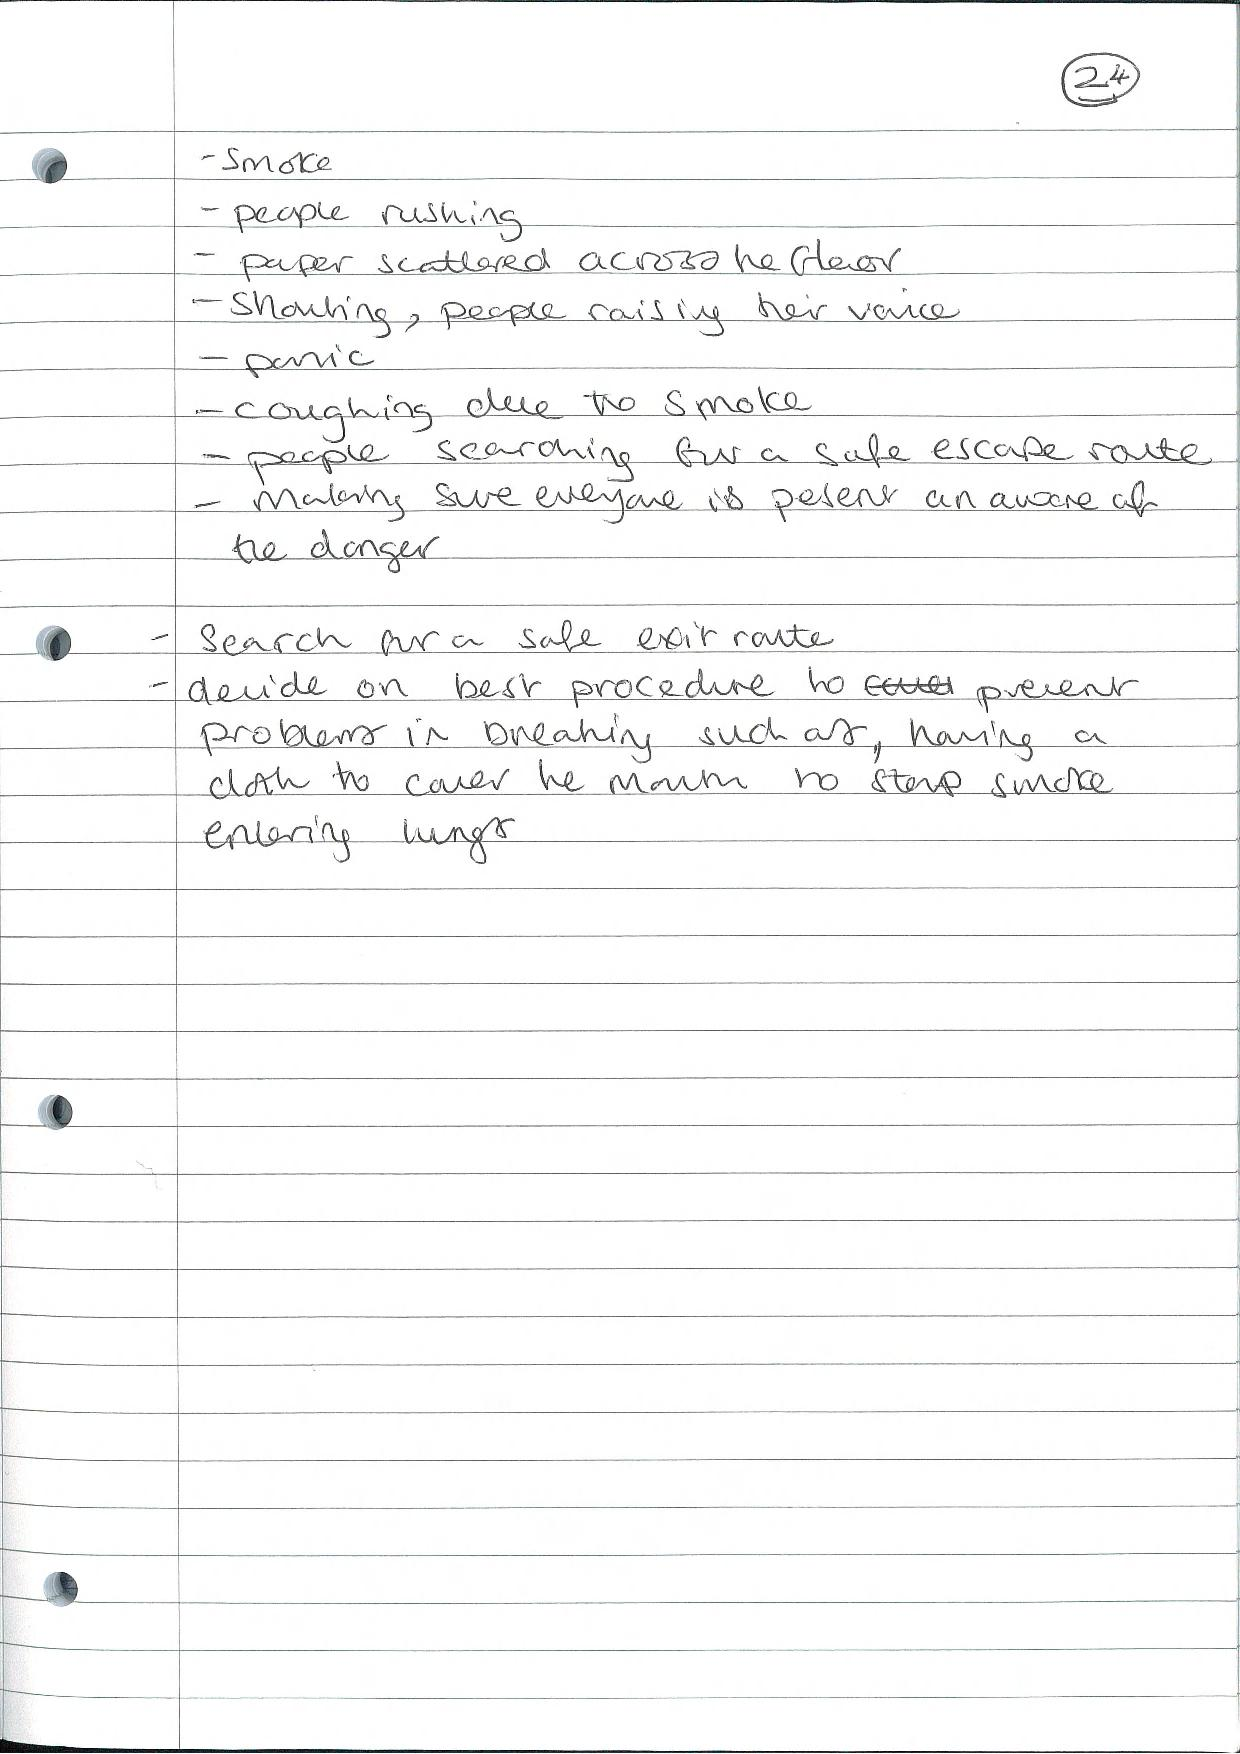 24
- Smoke
- people rushing
- paper scattered across the floor
- Shouting, people raising their voice
- panic
- coughing due to smoke
- people searching for a safe escape route
- Making sure everyone is pesent an aware of
the danger
- Search for a safe exit route
- decide on best procedure to prevent
problems in breathing such as, having a
cloth to cover the mouth to stop smoke
entering lungs